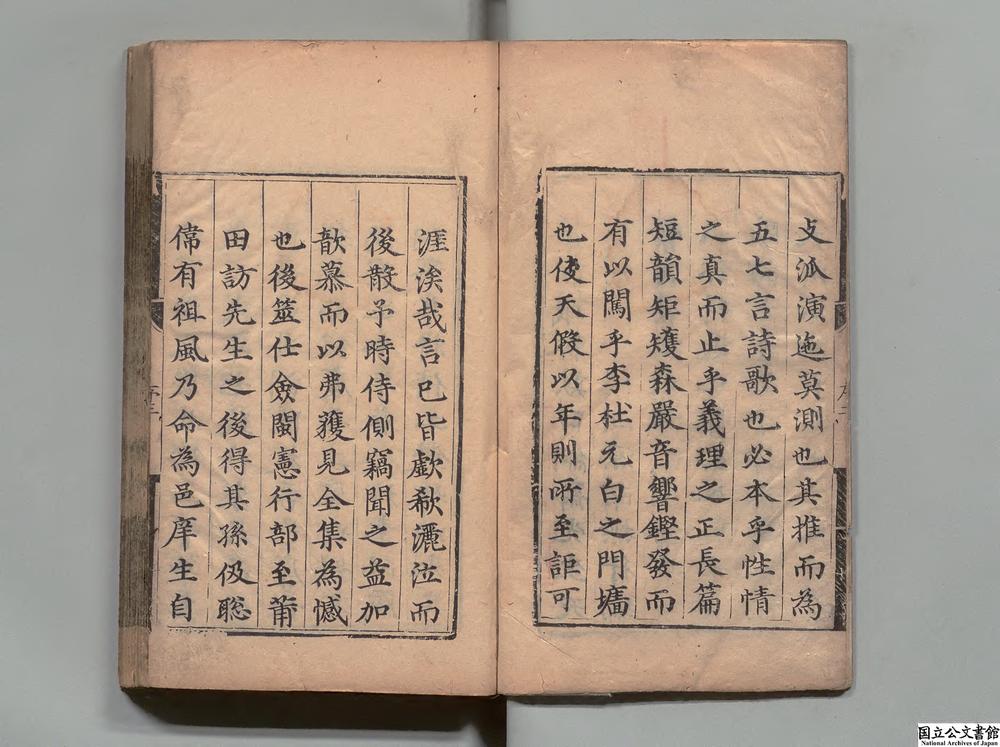 支派演迤莫測也其推而為
五七言詩歌也必本乎性情
之真而止乎義理之正長篇
短韻矩矱森嚴音響鏗發而
有以闖乎李杜元白之門墻
也使天假以年則所至詎可
涯涘哉言已皆歔欷灑泣而
後散予時侍側竊聞之益加
歆慕而以弗獲見全集為憾
也後筮仕僉閩憲行部至莆
田訪先生之後得其孫伋聡
偉有祖風乃命為邑庠生自
国立公文書館
National Archives of Japan